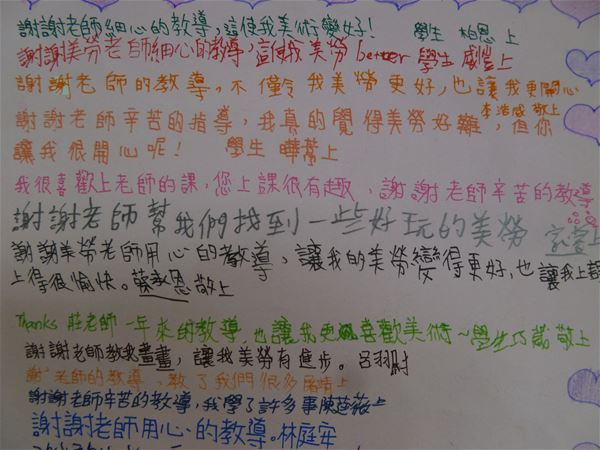 謝謝老師細心的教導,這使我美術變好! 學生 柏恩 上
謝謝美勞老師細心的教導,這使我美勞 better 學生 上
謝謝老師的教導,不僅令我美勞更好,也讓我更開心
李浩威 敬上
謝謝老師辛苦的指導,我真的覺得美勞好難,但你
讓我很開心呢! 學生 上
我很喜歡上老師的課,您上課很有趣、謝謝老師辛苦的教導
謝謝老師幫我們找到一些好玩的美勞 上
謝謝美勞老師用心的教導,讓我的美勞變得更好,也讓我上
上得很愉快。蔡承恩 敬上
Thanks 莊老師一年來的教導 也讓我更喜歡美術~學生 敬上
謝謝老師教我畫畫,讓我美勞有進步。呂羽
謝老師的教導、教了我們很多 上
謝謝老師辛苦的教導,我學了許多事 上
謝謝老師用心的教導。林庭安